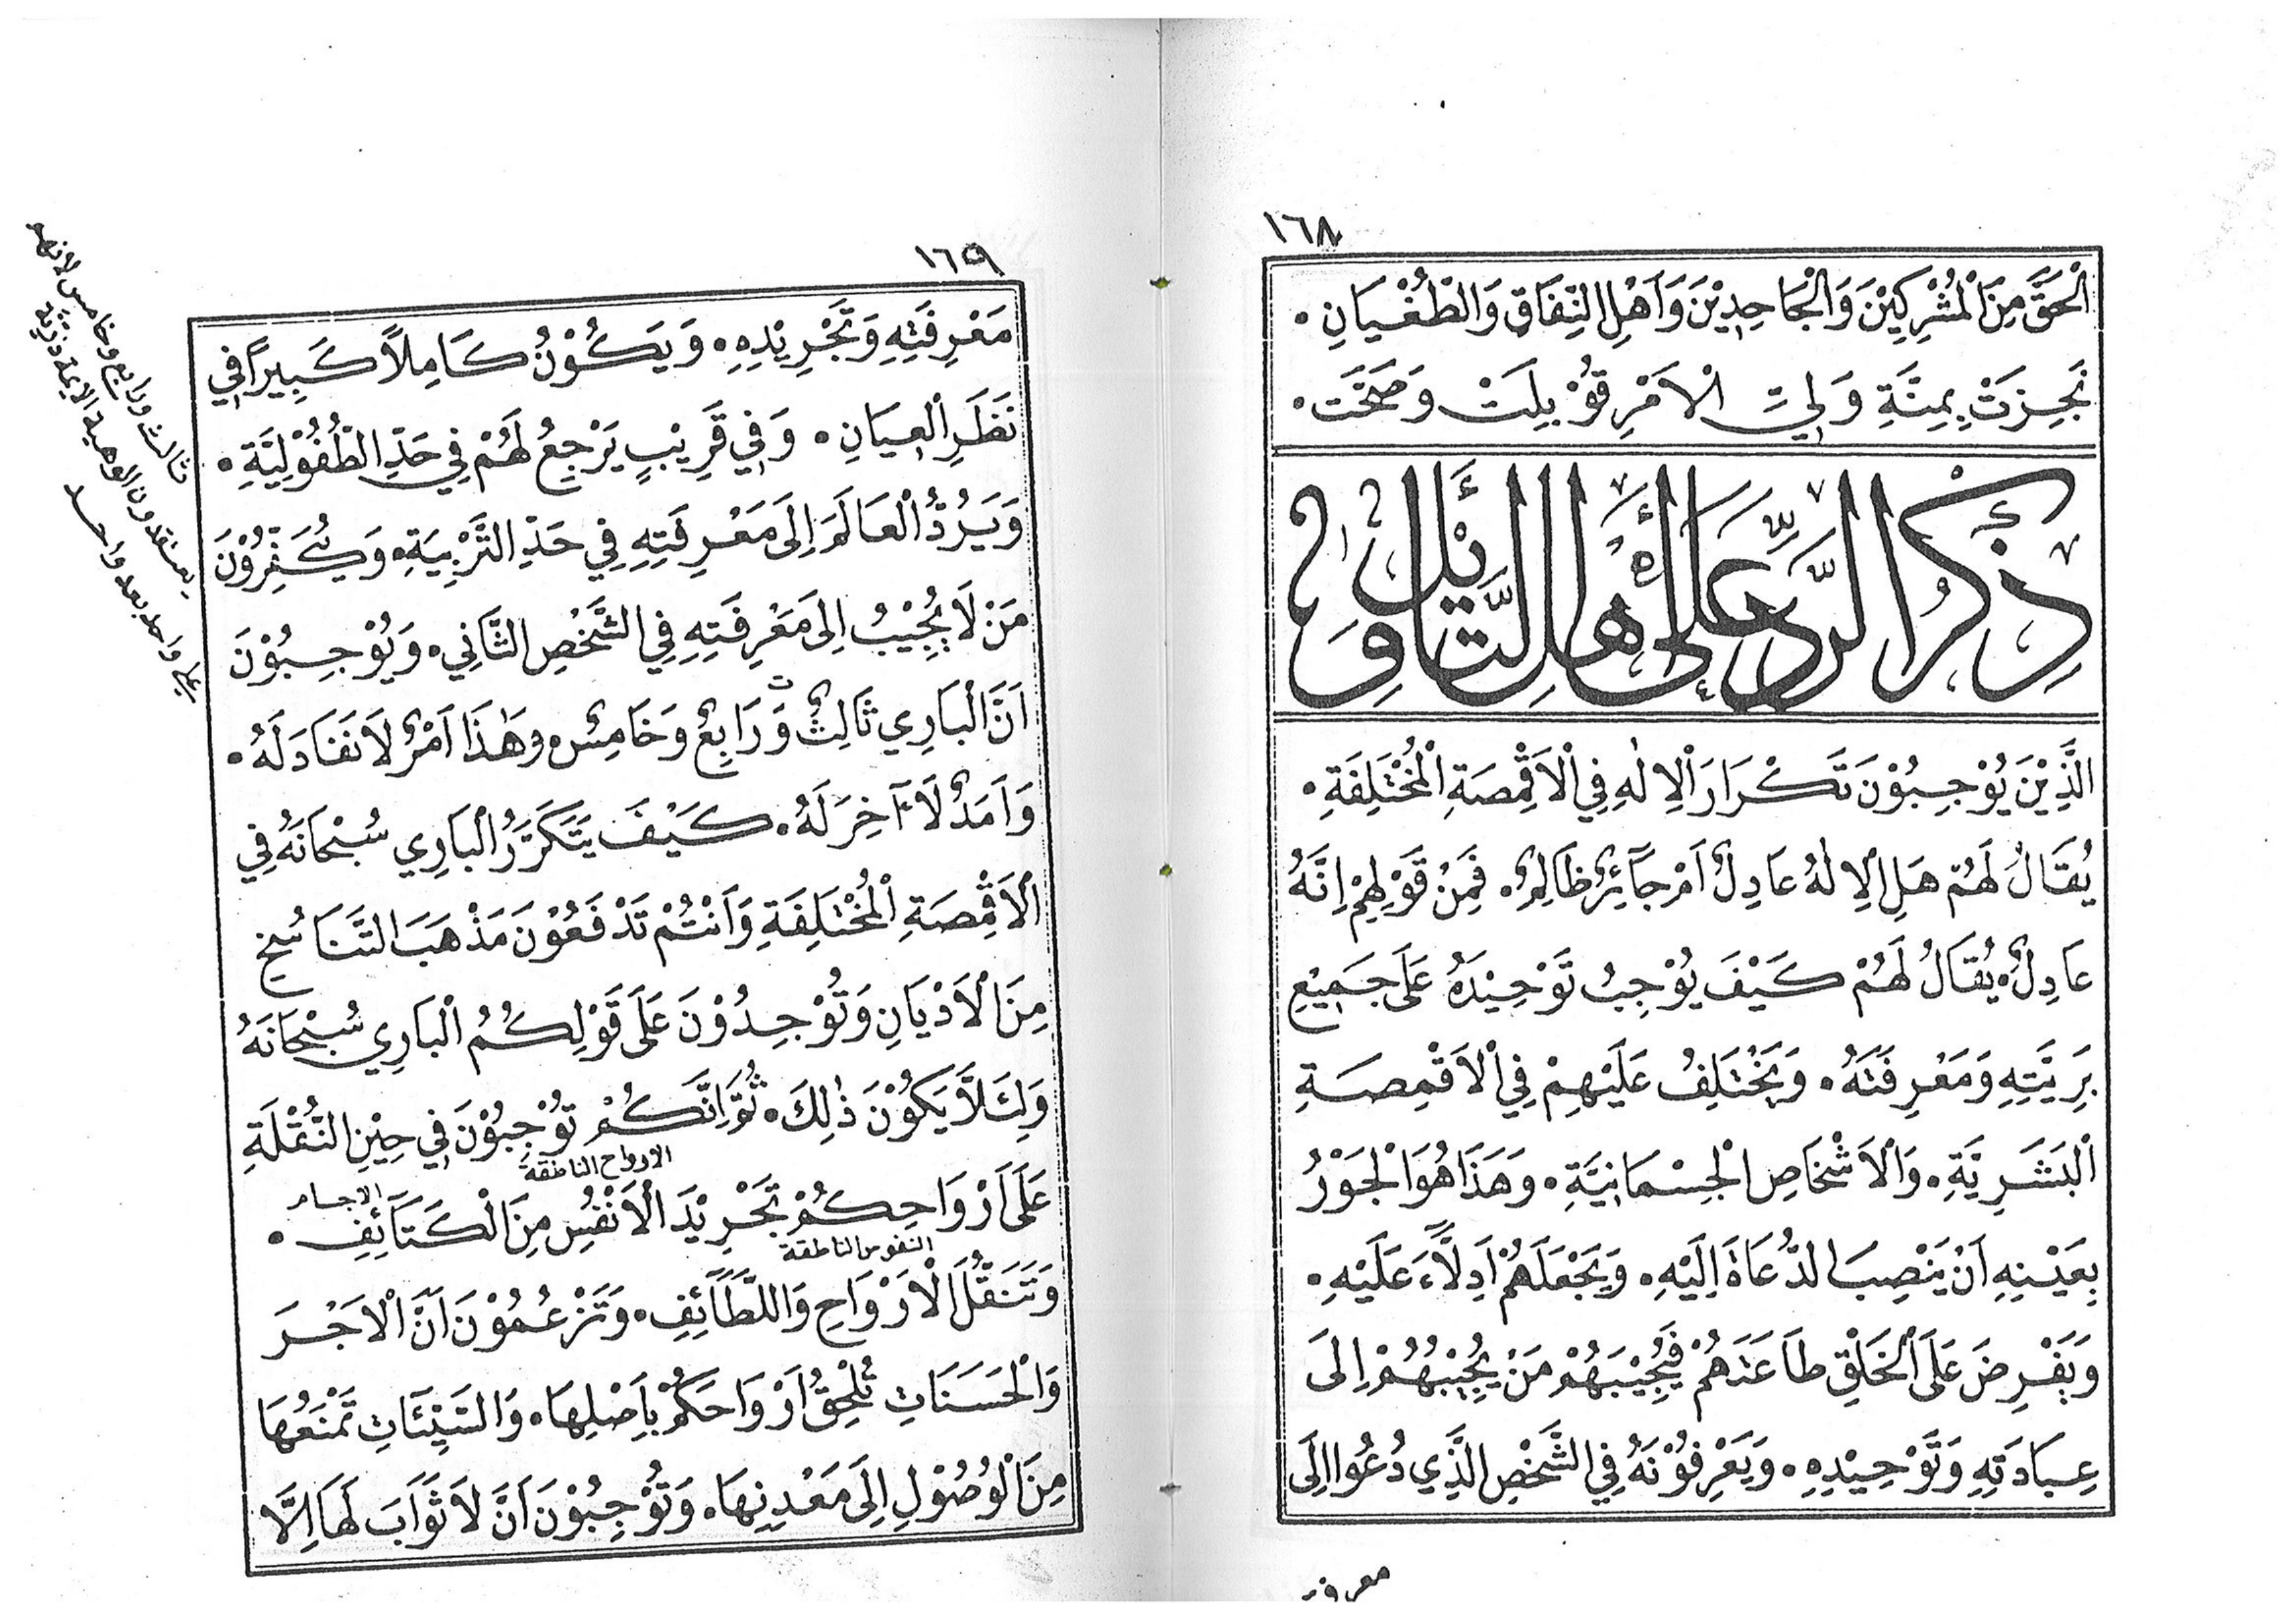 ١٦٨
اَلْحَقَّ مِنَ الْمُشْرِكِيْنَ وَالْجَاحِدِيْنَ وَاَهْلِ النِّفَاقِ وَالطُّغْيَانِ ۰
نَجِزَتْ بِمِنَّةِ وَلِيِّ الْاَمْرِ قُوْبِلَتْ وَصَحَّتْ ۰
ذِكْرُ الرَّدِّ عَلَى أَهْلِ التَّأْوِيْلِ
الَّذِيْنَ يُوْجِبُوْنَ تَكْرَارَ اْلاِلٰهِ فِي اْلاَقْمِصَةِ الْمُخْتَلِفَةِ ۰
يُقَالُ لَهُمْ هَلِ اْلاِلٰهُ عَادِلٌ اَمْ جَآئِرٌ ظَالِمٌ ۰ فَمِنْ قَوْلِهِمْ اِنَّهُ
عَادِلٌ ۰ يُقَالُ لَهُمْ كَيْفَ يُوْجِبُ تَوْحِيْدَهُ عَلَى جَمِيْعِ
بَرِيَّتِهِ وَمَعْرِفَتَهُ ۰ وَيَخْتَلِفُ عَلَيْهِمْ فِي اْلاَقْمِصَةِ
الْبَشَرِيَّةِ ۰ وَاْلاَشْخَاصِ الْجِسْمَانِيَّةِ ۰ وَهَذَا هُوَ الْجَوْرُ
بِعَيْنِهِ اَنْ يَنْصِبَ الدُّعَاةَ اِلَيْهِ ۰ وَيَجْعَلَهُمْ اَدِلَّاءَ عَلَيْهِ ۰
وَيَفْرِضَ عَلَى الْخَلْقِ طَاعَتَهُمْ فَيُجِيْبَهُمْ مَنْ يُجِيْبُهُمْ اِلَى
عِبَادَتِهِ وَتَوْحِيْدِهِ ۰ وَيَعْرِفُوْنَهُ فِي الشَّخْصِ الَّذِي دُعُوا اِلَى
معرفته
١٦٩
مَعْرِفَتِهِ وَتَجْرِيْدِهِ ۰ وَيَكُوْنُ كَامِلاً كَبِيراً فِي
نَظَرِ الْعِيَانِ ۰ وَفِي قَرِيْبٍ يَرْجِعُ لَهُمْ فِي حَدِّ الطُّفُوْلِيَّةِ ۰
وَيَرُدُّ الْعَالَمَ اِلَى مَعْرِفَتِهِ فِي حَدِّ التَّرْبِيَةِ ۰ وَيُكَفِّرُوْنَ
مَنْ لَا يُجِيْبُ اِلَى مَعْرِفَتِهِ فِي الشَّخْصِ الثَّانِي ۰ وَيُوْجِبُوْنَ
اَنَّ الْبَارِي ثَالِثٌ وَرَابِعٌ وَخَامِسٌ ۰ وَهٰذَا اَمْرٌ لاَ نَفَادَ لَهُ ۰
وَاَمَدٌ لَا آخِرَ لَهُ ۰ كَيْفَ يَتَكَرَّرُ الْبَارِي سُبْحَانَهُ فِي
اْلاَقْمِصَةِ الْمُخْتَلِفَةِ وَاَنْتُمْ تَدْفَعُوْنَ مَذْهَبَ التَّنَاسُخِ
مِنَ اْلاَدْيَانِ وَتُوْجِدُوْنَ عَلَى قَوْلِكُمُ الْبَارِي سُبْحَانَهُ
وَلِئَلاَّ يَكُوْنَ ذٰلِكَ ۰ ثُمَّ اِنَّكُمْ تُوْجِبُوْنَ فِي حِيْنِ النُّقْلَةِ
الارواح الناطقة
الاجسام
عَلَى اَرْوَاحِكُمْ تَجْرِيْدَ اْلاَنْفُسِ مِنَ الْكَثَآئِفِ ۰
النفوس الناطقة
وَتَنَقُّلَ اْلاَرْوَاحِ وَاللَّطَآئِفِ ۰ وَتَزْعُمُوْنَ اَنَّ اْلاَجْرَ
وَالْحَسَنَاتِ تُلْحِقُ اَرْوَاحَكُمْ بِاَصْلِهَا ۰ وَالسَّيِّئَاتِ تَمْنَعُهَا
مِنَ الْوُصُوْلِ اِلَى مَعْدِنِهَا ۰ وَتُوْجِبُوْنَ اَنَّ لاَ ثَوَابَ لَهَا اِلَّا
ثالث ورابع وخامس لأنهم
يعتقدون الوهية الأئمة ذرية
علي واحد بعد واحد